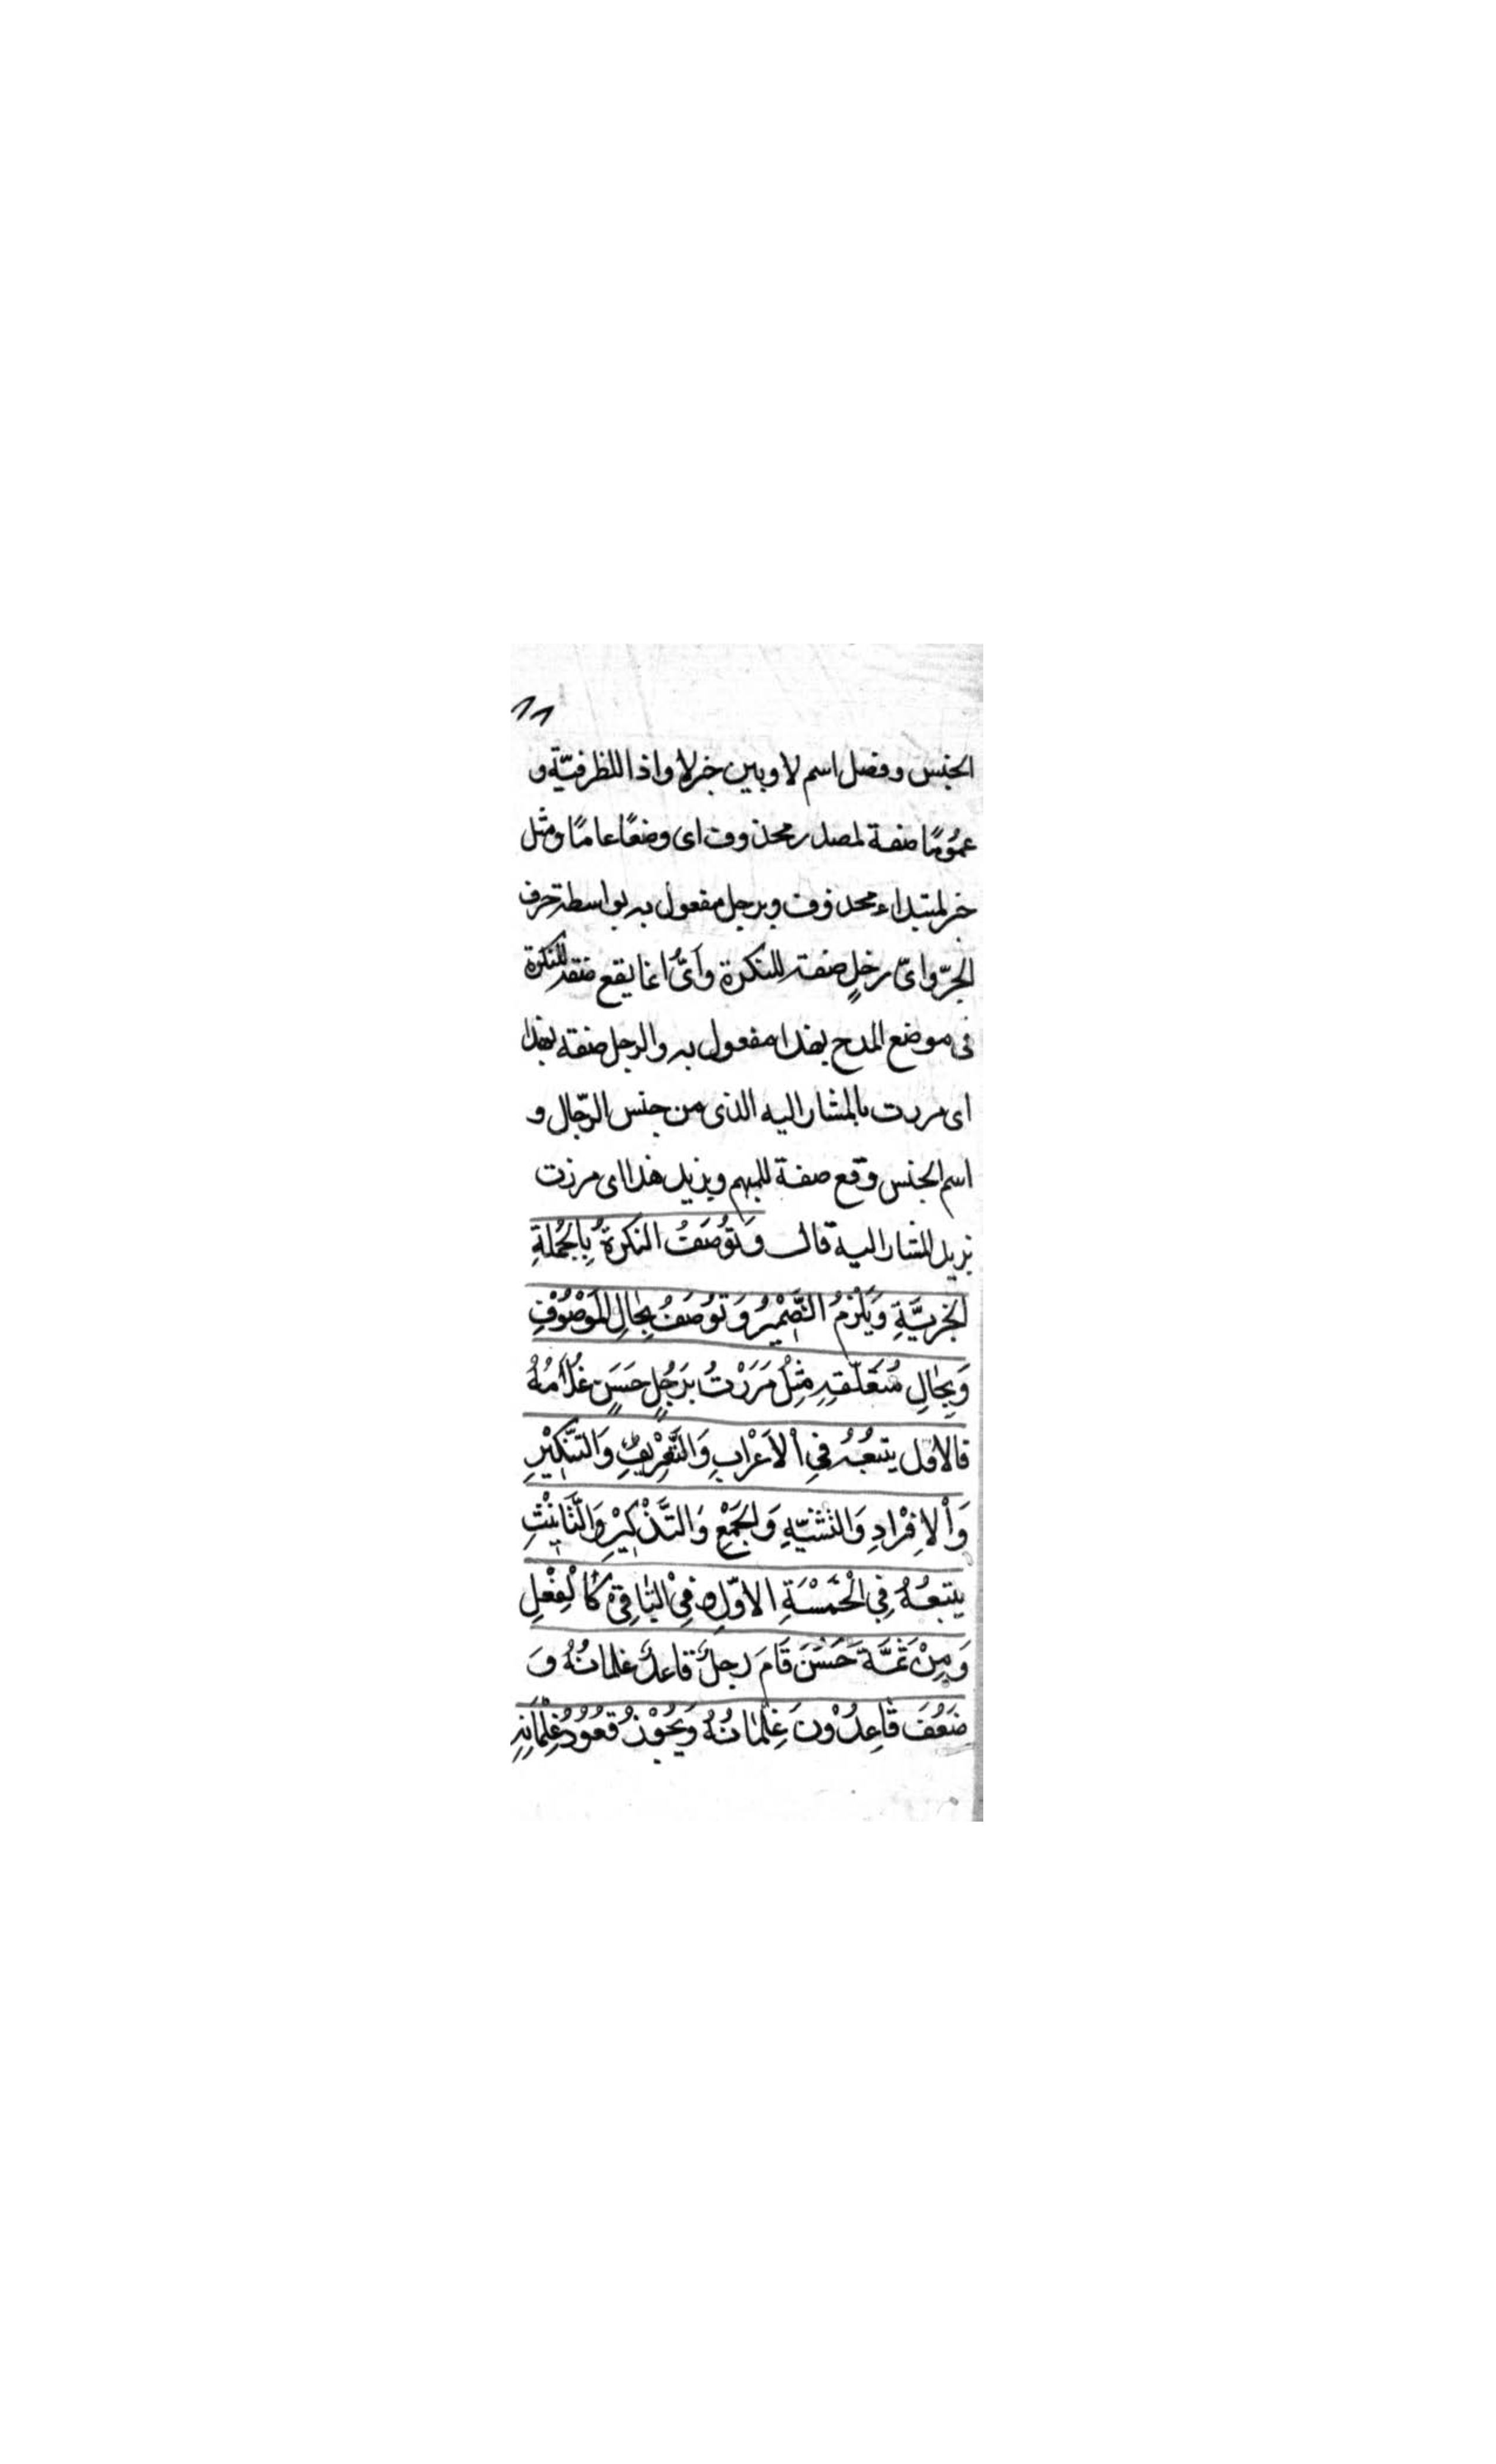 ١١
الجنس وفصل اسم لا وبين خبر لا واذا للظرفيّة و
عمُومًا صفة لمصدر محذوف اى وضعًا عامًا ومثل
خبر لمبتداء محذوف وبرجل مفعول به بواسطة حرف
الجرّ واىّ رجلٍ صفة للنكرة وأىُّ انما يقع صفة للنكرة
فى موضع المدح بهذا مفعول به والرجل صفة بهذا
اى مررت بالمشار اليه الذى من جنس الرّجال و
اسم الجنس وقع صفة للمبهم وبزيد هذا اى مررت
بزيد المشار اليه قال وَتُوصَفُ النكرةُ بِالجُملَةِ
الخبريَّةِ وَيَلْزمُ الضَّمْيرُ وَتُوصَفُ بِحَالِ المَوْصُوْفِ
وَبِحَالِ مُتَعَلّقِهِ مِثْلُ مَرَرْتُ بِرَجُلٍ حَسَنٍ غُلاَمُهُ
فالاوّل يتبعُهُ فِي اْلاَعْرَابِ وَالتَّعْرِيْفِ وَالتَّنْكِيْرِ
وَاْلاِفْرَادِ وَالتَثْنِيّةِ وَالجَمْعِ وَالتَّذْكِيْرِ وَالتَّانِيْثِ
يتبعُهُ فِي الْخَمْسَةِ الاوّل وفِى الْبَاقِى كَالْفِعْلِ
وَمِنْ ثَمَّةَ حَسُنَ قَامَ رَجلٌ قاعدٌ غلمانُهُ وَ
ضَعُفَ قَاعِدُوْنَ غِلْمَانُهُ وَيَجُوْزُ قُعُوْدُ غِلْمَانِهِ